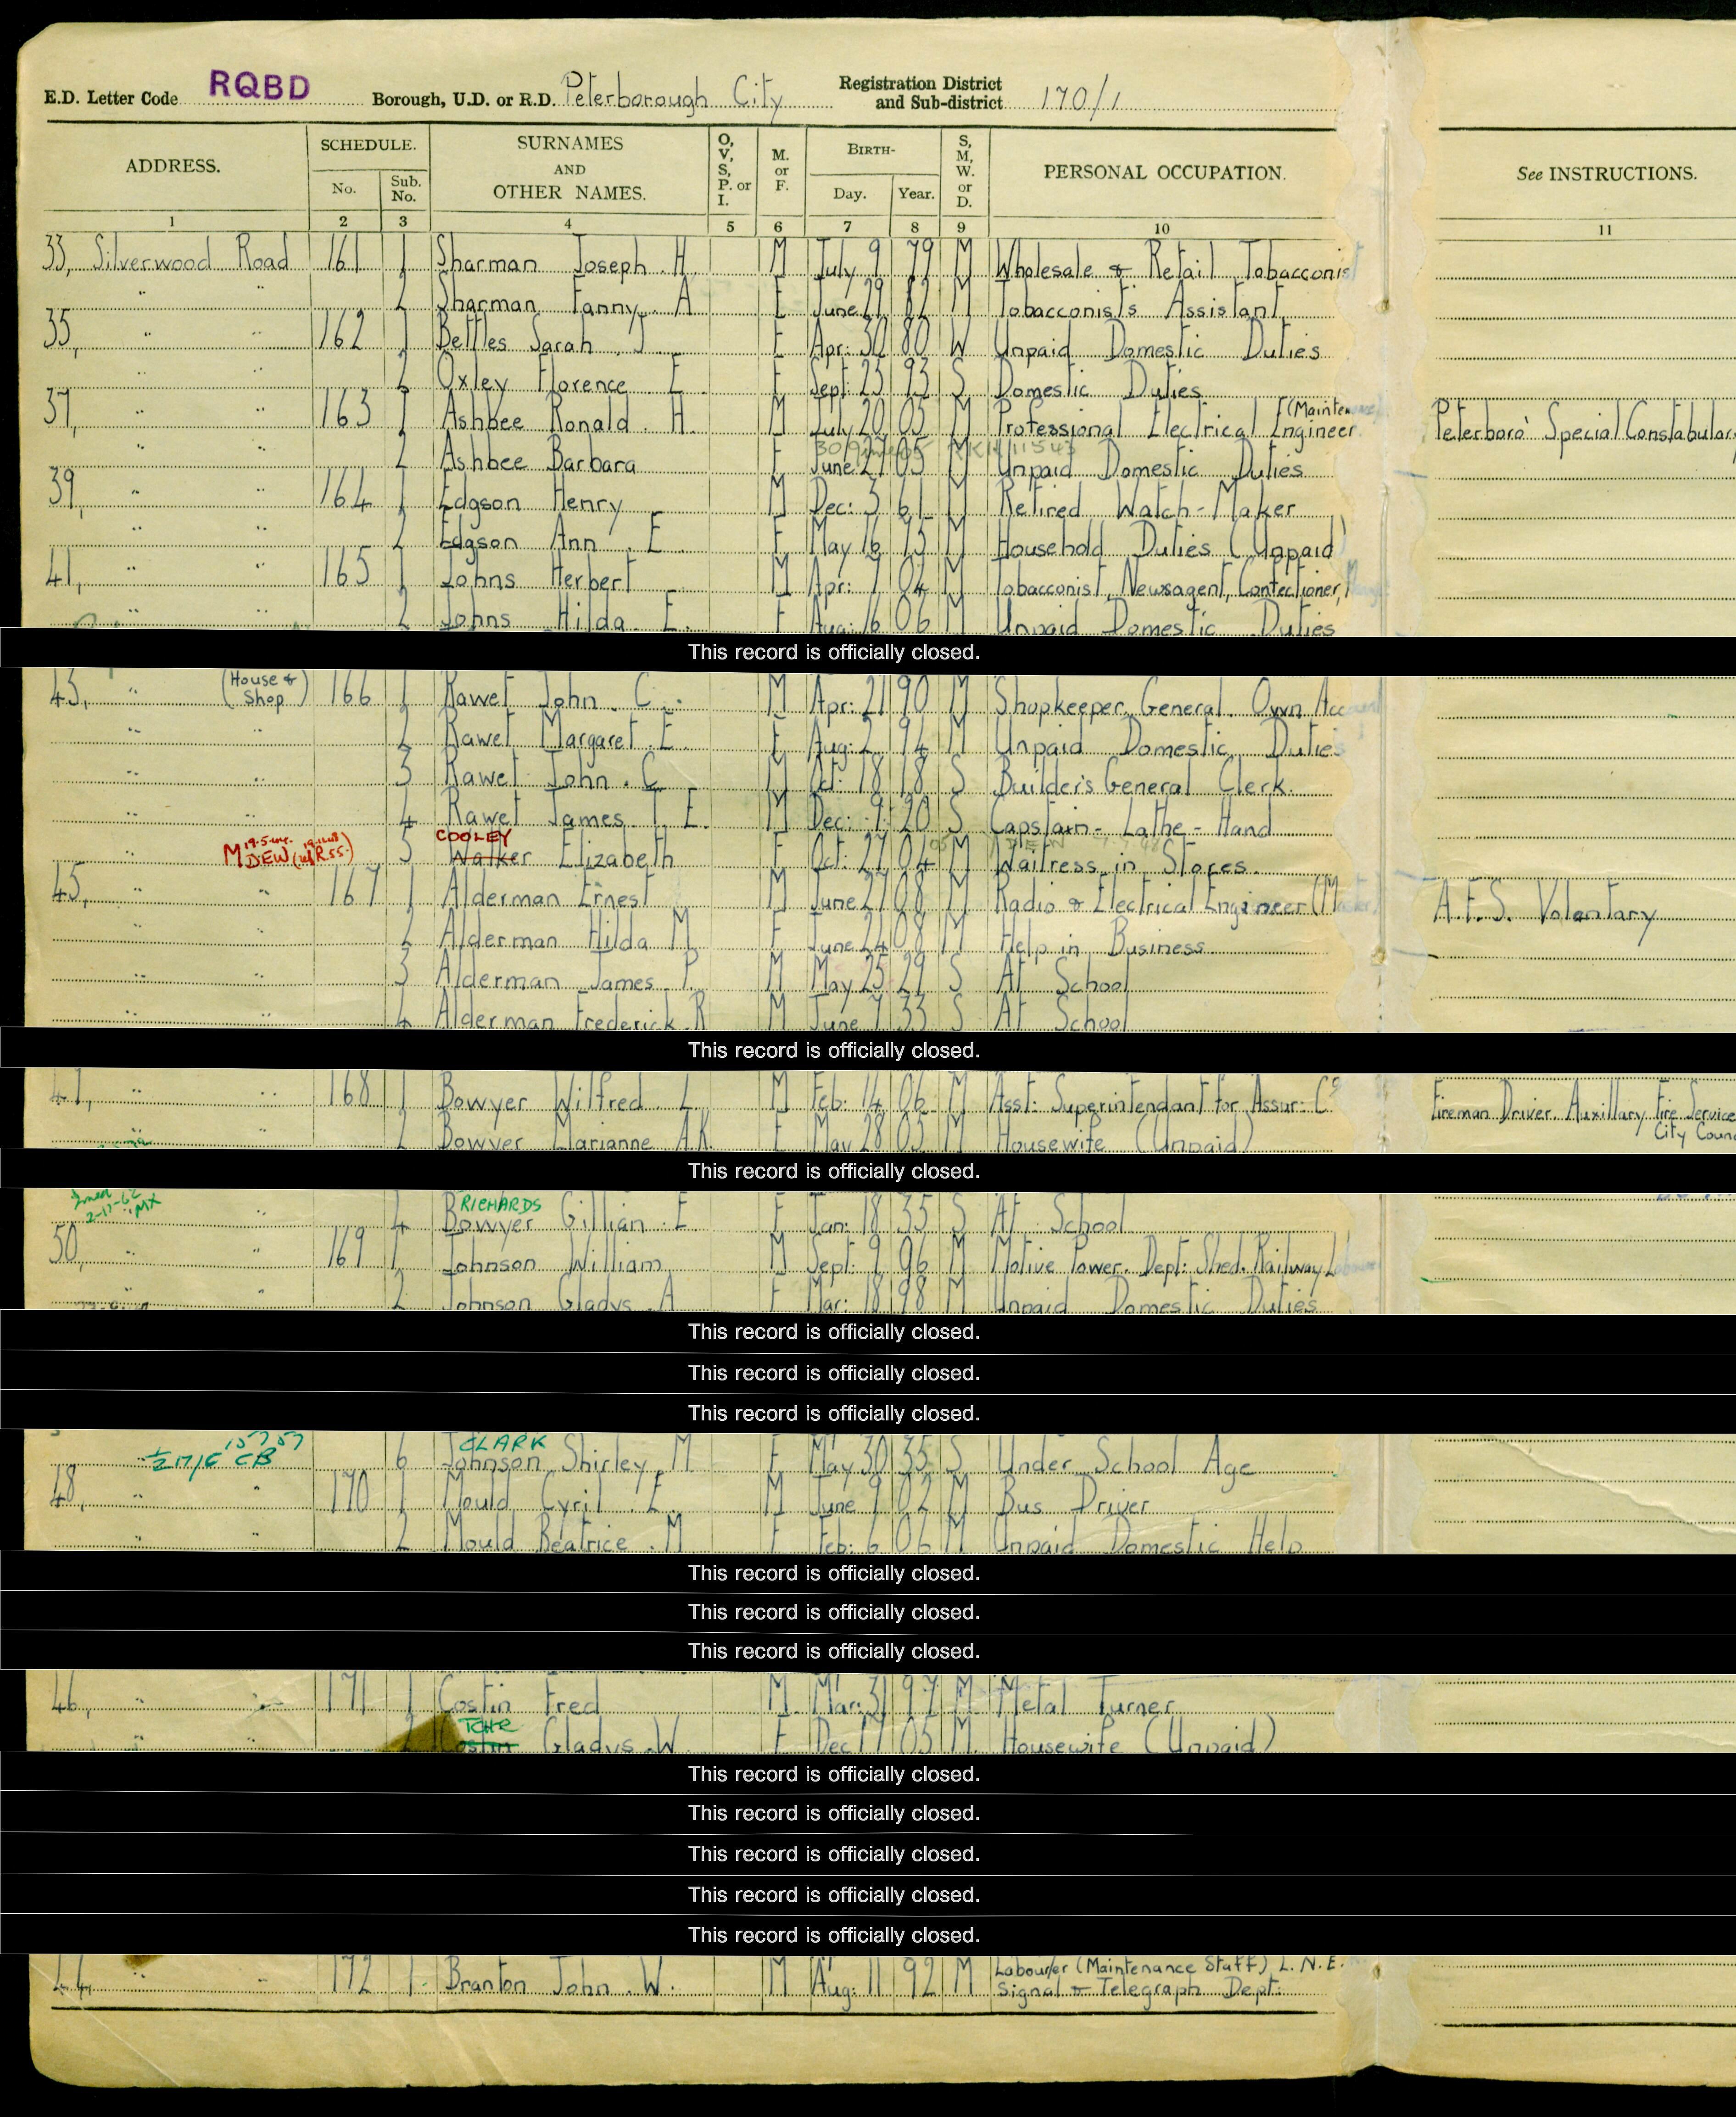 E.D. Letter Code RQBD Borough, U.D. or R.D. Peterborough City Registration District and Sub-district 170/1
ADDRESS. SCHEDULE. No. Sub. No. SURNAMES AND OTHER NAMES. O, V, S, P. or I. M. or F. BIRTH- Day. Year. S, M, W. or D. PERSONAL OCCUPATION. See INSTRUCTIONS.
1 2 3 4 5 6 7 8 9 10 11
33, Silverwood Road 161 1 Sharman Joseph. H. M July 9 79 M Wholesale & Retail Tobacconist
" " 2 Sharman Fanny. A F June 29 82 M Tobacconist's Assistant
35, " " 162 1 Bettles Sarah. J F Apr: 30 80 W Unpaid Domestic Duties
" " 2 Oxley Florence E F Sept: 23 93 S Domestic Duties
37, " " 163 1 Ashbee Ronald. H. M July 20 05 M Professional Electrical Engineer (Mainten Peterboro' Special Constabular
" " 2 Ashbee Barbara F June 27 05 M Unpaid Domestic Duties
39, " " 164 1 Edgson Henry M Dec: 3 61 M Retired Watch-Maker
" " 2 Edgson Ann. E. F May 16 73 M Household Duties (Unpaid)
41, " " 165 1 Johns Herbert M Apr: 7 04 M Tobacconist, Newsagent, Confectioner,
" " 2 Johns Hilda. E. F Aug: 16 06 M Unpaid Domestic Duties
This record is officially closed.
43, " (House & Shop) 166 1 Rawet John. C. M Apr: 21 90 M Shopkeeper, General. Own Acc
" " 2 Rawet Margaret. E. F Aug: 2 94 M Unpaid Domestic Duties
" " 3 Rawet John. C M Oct: 18 18 S Builder's General Clerk.
" " 4 Rawet James T. E. M Dec: 9 20 S Capstain-Lathe-Hand
COOLEY
" M DEW 5 Walker Elizabeth F Oct: 27 04 M Waitress in Stores.
45, " 167 1 Alderman Ernest M June 27 08 M Radio & Electrical Engineer (M A.F.S. Volantary
" " 2 Alderman Hilda M F June 24 08 M Help in Business
" " 3 Alderman James. P. M May 25 29 S At School
" " 4 Alderman Frederick. R M June 7 33 S At School
This record is officially closed.
47, " " 168 1 Bowyer Wilfred L. M Feb: 14 06 M Asst: Superintendant for Assur: Co Fireman Driver Auxillary Fire Service City Coun
2 Bowyer Marianne A.K. F May 28 05 M Housewife (Unpaid)
This record is officially closed.
RICHARDS
" 4 Bowyer Gillian. E. F Jan: 18 35 S At School
50, " " 169 1 Johnson William M Sept: 9 96 M Motive Power. Dept: Shed. Railway
" 2 Johnson Gladys. A F Mar: 18 98 M Unpaid Domestic Duties
This record is officially closed.
This record is officially closed.
This record is officially closed.
CLARK
CB 6 Johnson Shirley. M F May 30 35 S Under School Age
48, " " 170 1 Mould Cyril. E. M June 9 02 M Bus Driver
" " 2 Mould Beatrice. M F Feb: 6 06 M Unpaid Domestic Help
This record is officially closed.
This record is officially closed.
This record is officially closed.
46, " " 171 1 Costin Fred M Mar: 31 97 M Metal Turner
" " 2 Costin Gladys. W. F Dec 17 05 M. Housewife (Unpaid)
This record is officially closed.
This record is officially closed.
This record is officially closed.
This record is officially closed.
This record is officially closed.
44, " " 172 1 Branton John. W. M Aug: 11 92 M Labourer (Maintenance Staff) L.N.E.
Signal & Telegraph Dept: